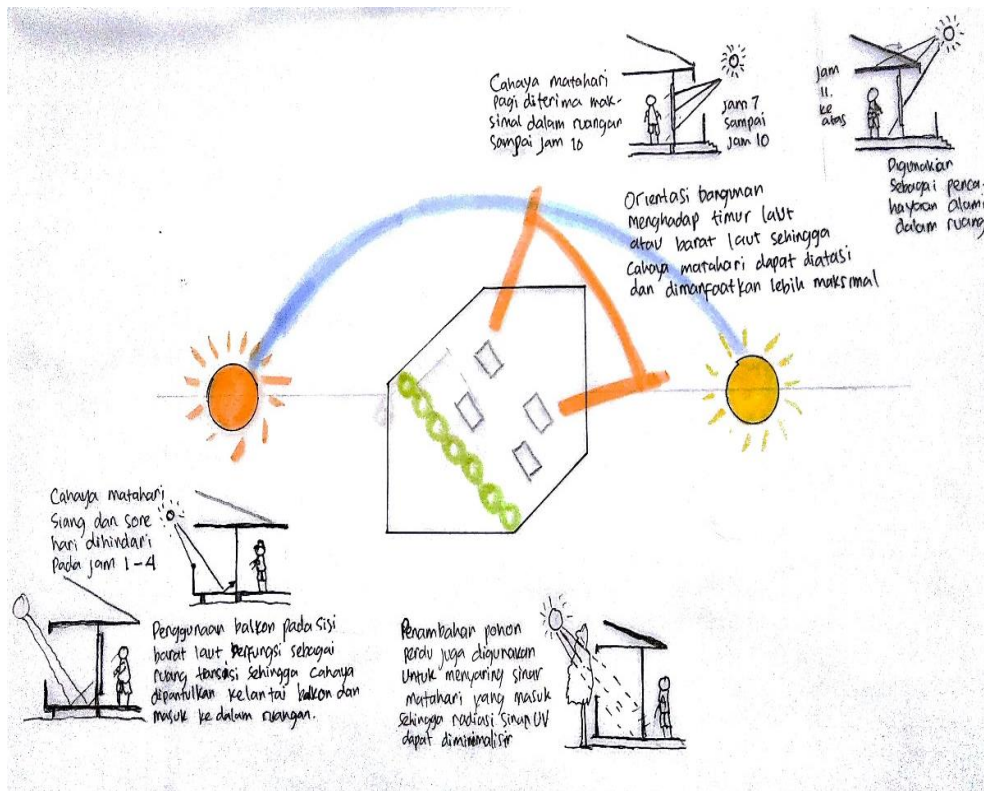 Cahaya matahari
pagi diterima mak-
simal dalam ruangan
sampai jam 10
jam 7
sampai
jam 10
jam
11.
ke
atas
Digunakan
sebagai penca-
hayaan alami
dalam ruang
Orientasi bangunan
menghadap timur laut
atau barat laut sehingga
cahaya matahari dapat diatasi
dan dimanfaatkan lebih maksimal
Cahaya matahari
siang dan sore
hari dihindari
pada jam 1-4
Penggunaan balkon pada sisi
barat laut berfungsi sebagai
ruang transisi sehingga cahaya
dipantulkan kelantai balkon dan
masuk ke dalam ruangan.
Penambahan pohon
perdu juga digunakan
untuk menyaring sinar
matahari yang masuk
sehingga radiasi sinar UV
dapat diminimalisir